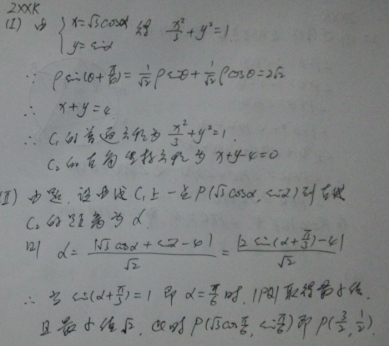 ZXXK
(I) 由 { x=√3cosα 得 x²/3+y²=1
y=sinα
∴ ρsin(θ+π/4)=1/√2 ρsinθ+1/√2 ρcosθ=2√2
∴ x+y=4
∴ C₁的普通方程为 x²/3+y²=1.
C₂的直角坐标方程为 x+y-4=0
(II) 由题,设曲线C₁上一点P(√3cosα, sinα)到直线
C₂的距离为d.
则 d=|√3cosα+sinα-4|/√2=|2sin(α+π/3)-4|/√2
∴ 当 sin(α+π/3)=1 即 α=π/6时, |PQ|取得最小值,
且最小值√2, 此时P(√3cosπ/6, sinπ/6)即P(3/2, 1/2).